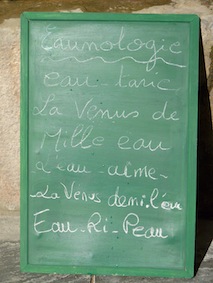 Eaunologie
eau-taric
La Vénus de
Mille eau
L'eau-arme-
La Vénus demi-l'eau
Eau-Ri-Peau